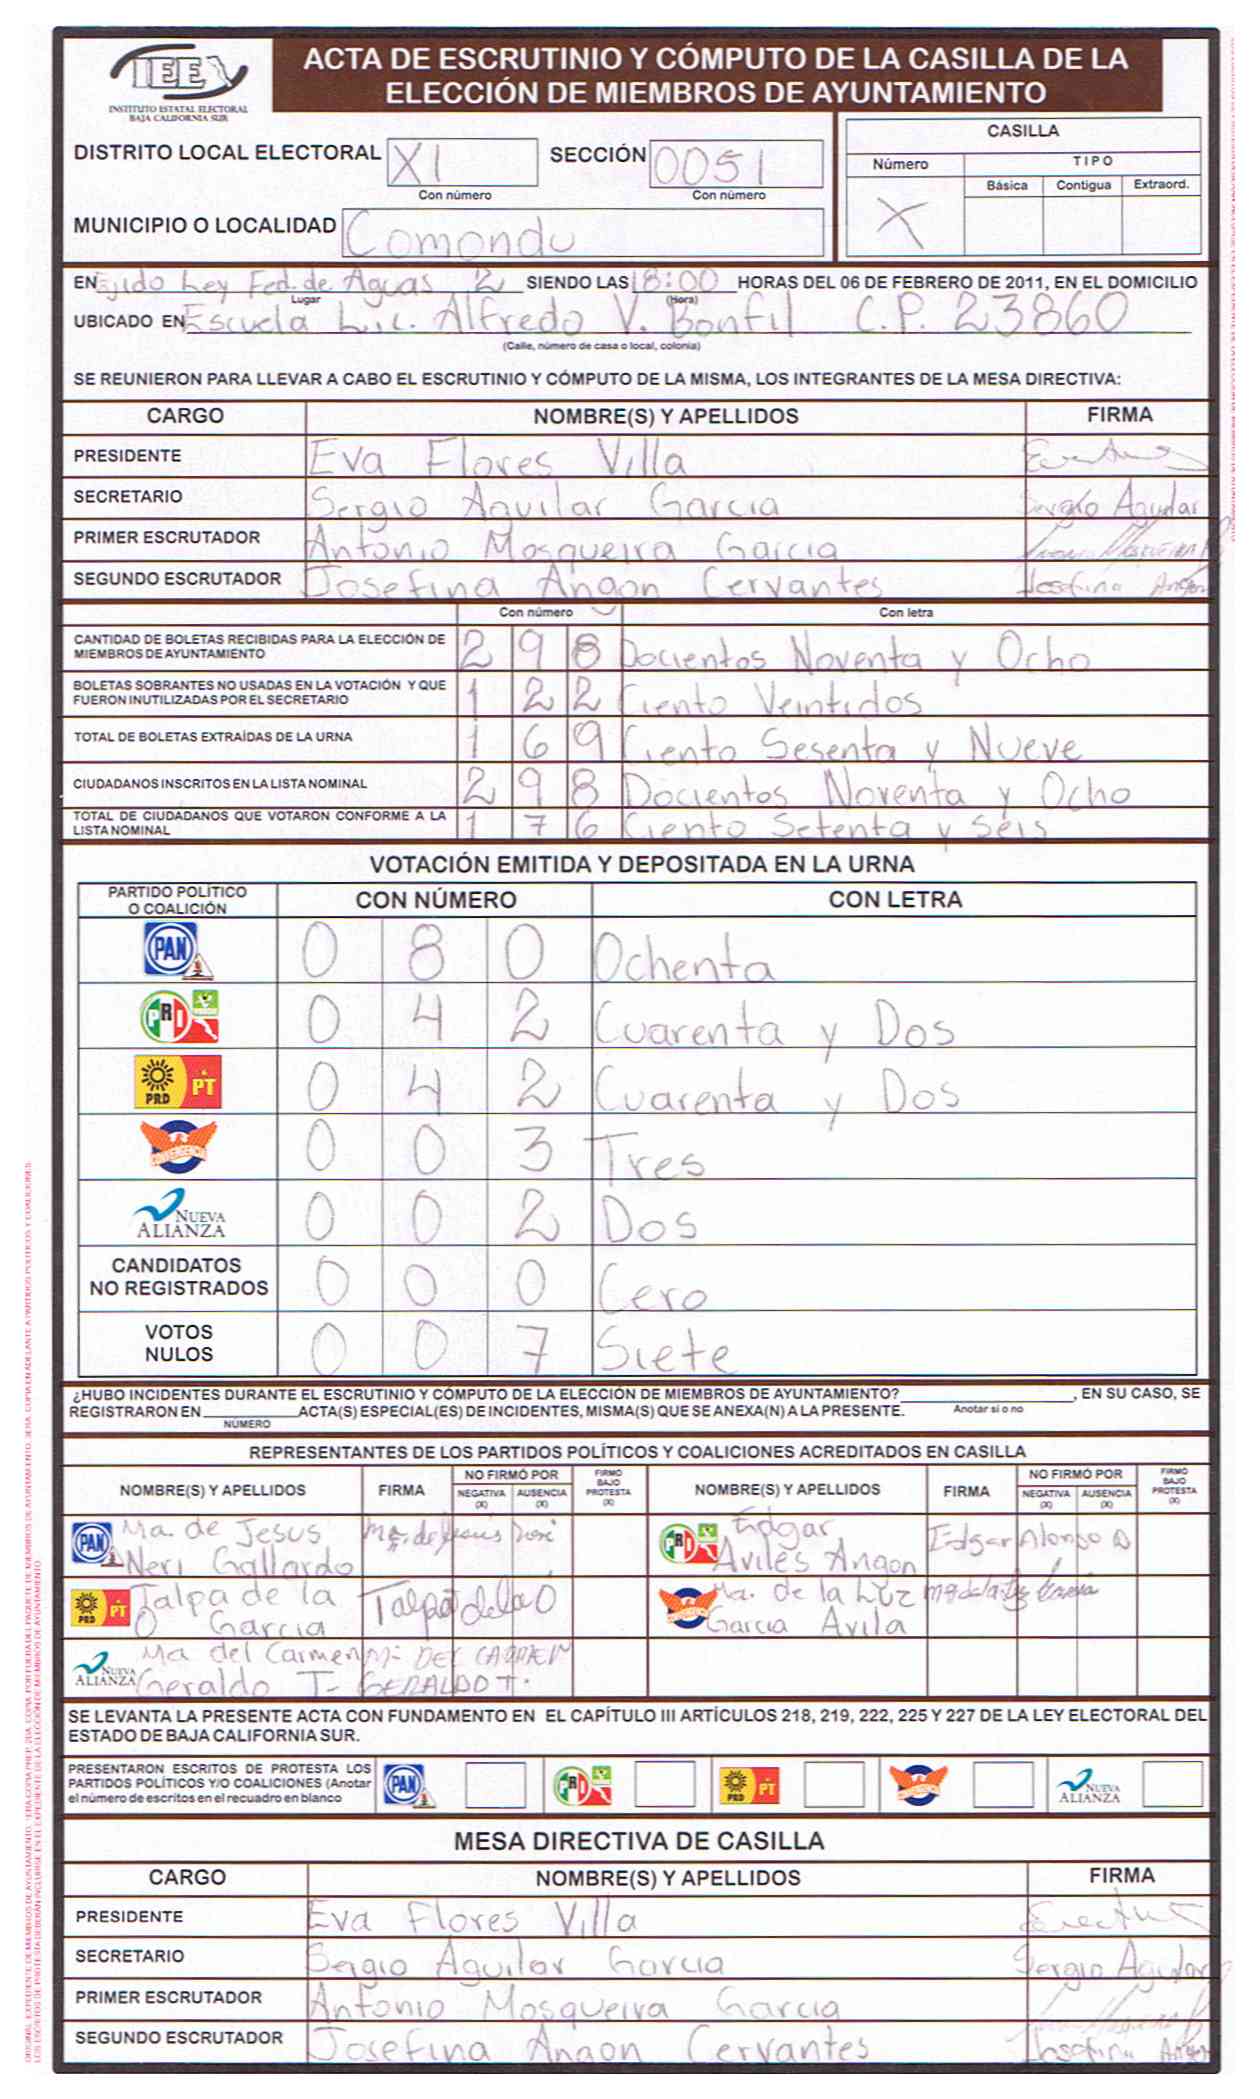 IEE
INSTITUTO ESTATAL ELECTORAL
BAJA CALIFORNIA SUR
ACTA DE ESCRUTINIO Y CÓMPUTO DE LA CASILLA DE LA
ELECCIÓN DE MIEMBROS DE AYUNTAMIENTO
DISTRITO LOCAL ELECTORAL XI SECCIÓN 0051
Con número Con número
MUNICIPIO O LOCALIDAD Comondu
CASILLA
Número TIPO
Básica Contigua Extraord.
X
EN Ejido Ley Fed. de Aguas 2 SIENDO LAS 18:00 HORAS DEL 06 DE FEBRERO DE 2011, EN EL DOMICILIO
Lugar (Hora)
UBICADO EN Escuela Lic. Alfredo V. Bonfil C.P. 23860
(Calle, número de casa o local, colonia)
SE REUNIERON PARA LLEVAR A CABO EL ESCRUTINIO Y CÓMPUTO DE LA MISMA, LOS INTEGRANTES DE LA MESA DIRECTIVA:
CARGO NOMBRE(S) Y APELLIDOS FIRMA
PRESIDENTE Eva Flores Villa
SECRETARIO Sergio Aguilar Garcia Sergio Aguilar
PRIMER ESCRUTADOR Antonio Mosqueira Garcia
SEGUNDO ESCRUTADOR Josefina Angon Cervantes Josefina Angon
Con número Con letra
CANTIDAD DE BOLETAS RECIBIDAS PARA LA ELECCIÓN DE
MIEMBROS DE AYUNTAMIENTO 2 9 8 Docientos Noventa y Ocho
BOLETAS SOBRANTES NO USADAS EN LA VOTACIÓN Y QUE
FUERON INUTILIZADAS POR EL SECRETARIO 1 2 2 Ciento Veintidos
TOTAL DE BOLETAS EXTRAÍDAS DE LA URNA 1 6 9 Ciento Sesenta y Nueve
CIUDADANOS INSCRITOS EN LA LISTA NOMINAL 2 9 8 Docientos Noventa y Ocho
TOTAL DE CIUDADANOS QUE VOTARON CONFORME A LA
LISTA NOMINAL 1 7 6 Ciento Setenta y Seis
VOTACIÓN EMITIDA Y DEPOSITADA EN LA URNA
PARTIDO POLÍTICO
O COALICIÓN CON NÚMERO CON LETRA
PAN 0 8 0 Ochenta
PRI 0 4 2 Cuarenta y Dos
PRD PT 0 4 2 Cuarenta y Dos
CONVERGENCIA 0 0 3 Tres
NUEVA ALIANZA 0 0 2 Dos
CANDIDATOS
NO REGISTRADOS 0 0 0 Cero
VOTOS
NULOS 0 0 7 Siete
¿HUBO INCIDENTES DURANTE EL ESCRUTINIO Y CÓMPUTO DE LA ELECCIÓN DE MIEMBROS DE AYUNTAMIENTO? , EN SU CASO, SE
REGISTRARON EN ACTA(S) ESPECIAL(ES) DE INCIDENTES, MISMA(S) QUE SE ANEXA(N) A LA PRESENTE. Anotar si o no
NÚMERO
REPRESENTANTES DE LOS PARTIDOS POLÍTICOS Y COALICIONES ACREDITADOS EN CASILLA
NOMBRE(S) Y APELLIDOS FIRMA NO FIRMÓ POR NEGATIVA (X) AUSENCIA (X) FIRMÓ BAJO PROTESTA (X) NOMBRE(S) Y APELLIDOS FIRMA NO FIRMÓ POR NEGATIVA (X) AUSENCIA (X) FIRMÓ BAJO PROTESTA (X)
PAN Ma. de Jesus
Neri Gallardo
PRI Edgar
Aviles Angon Edgar Alonso A
PRD PT Talpa de la
O Garcia Talpa de la O
CONVERGENCIA Ma. de la Luz
Garcia Avila
NUEVA ALIANZA Ma del Carmen
Geraldo T. Ma DEL CARMEN
GERALDO T.
SE LEVANTA LA PRESENTE ACTA CON FUNDAMENTO EN EL CAPÍTULO III ARTÍCULOS 218, 219, 222, 225 Y 227 DE LA LEY ELECTORAL DEL
ESTADO DE BAJA CALIFORNIA SUR.
PRESENTARON ESCRITOS DE PROTESTA LOS
PARTIDOS POLÍTICOS Y/O COALICIONES (Anotar
el número de escritos en el recuadro en blanco
PAN PRI PRD PT CONVERGENCIA NUEVA ALIANZA
MESA DIRECTIVA DE CASILLA
CARGO NOMBRE(S) Y APELLIDOS FIRMA
PRESIDENTE Eva Flores Villa
SECRETARIO Sergio Aguilar Garcia Sergio Aguilar
PRIMER ESCRUTADOR Antonio Mosqueira Garcia
SEGUNDO ESCRUTADOR Josefina Angon Cervantes Josefina Angon